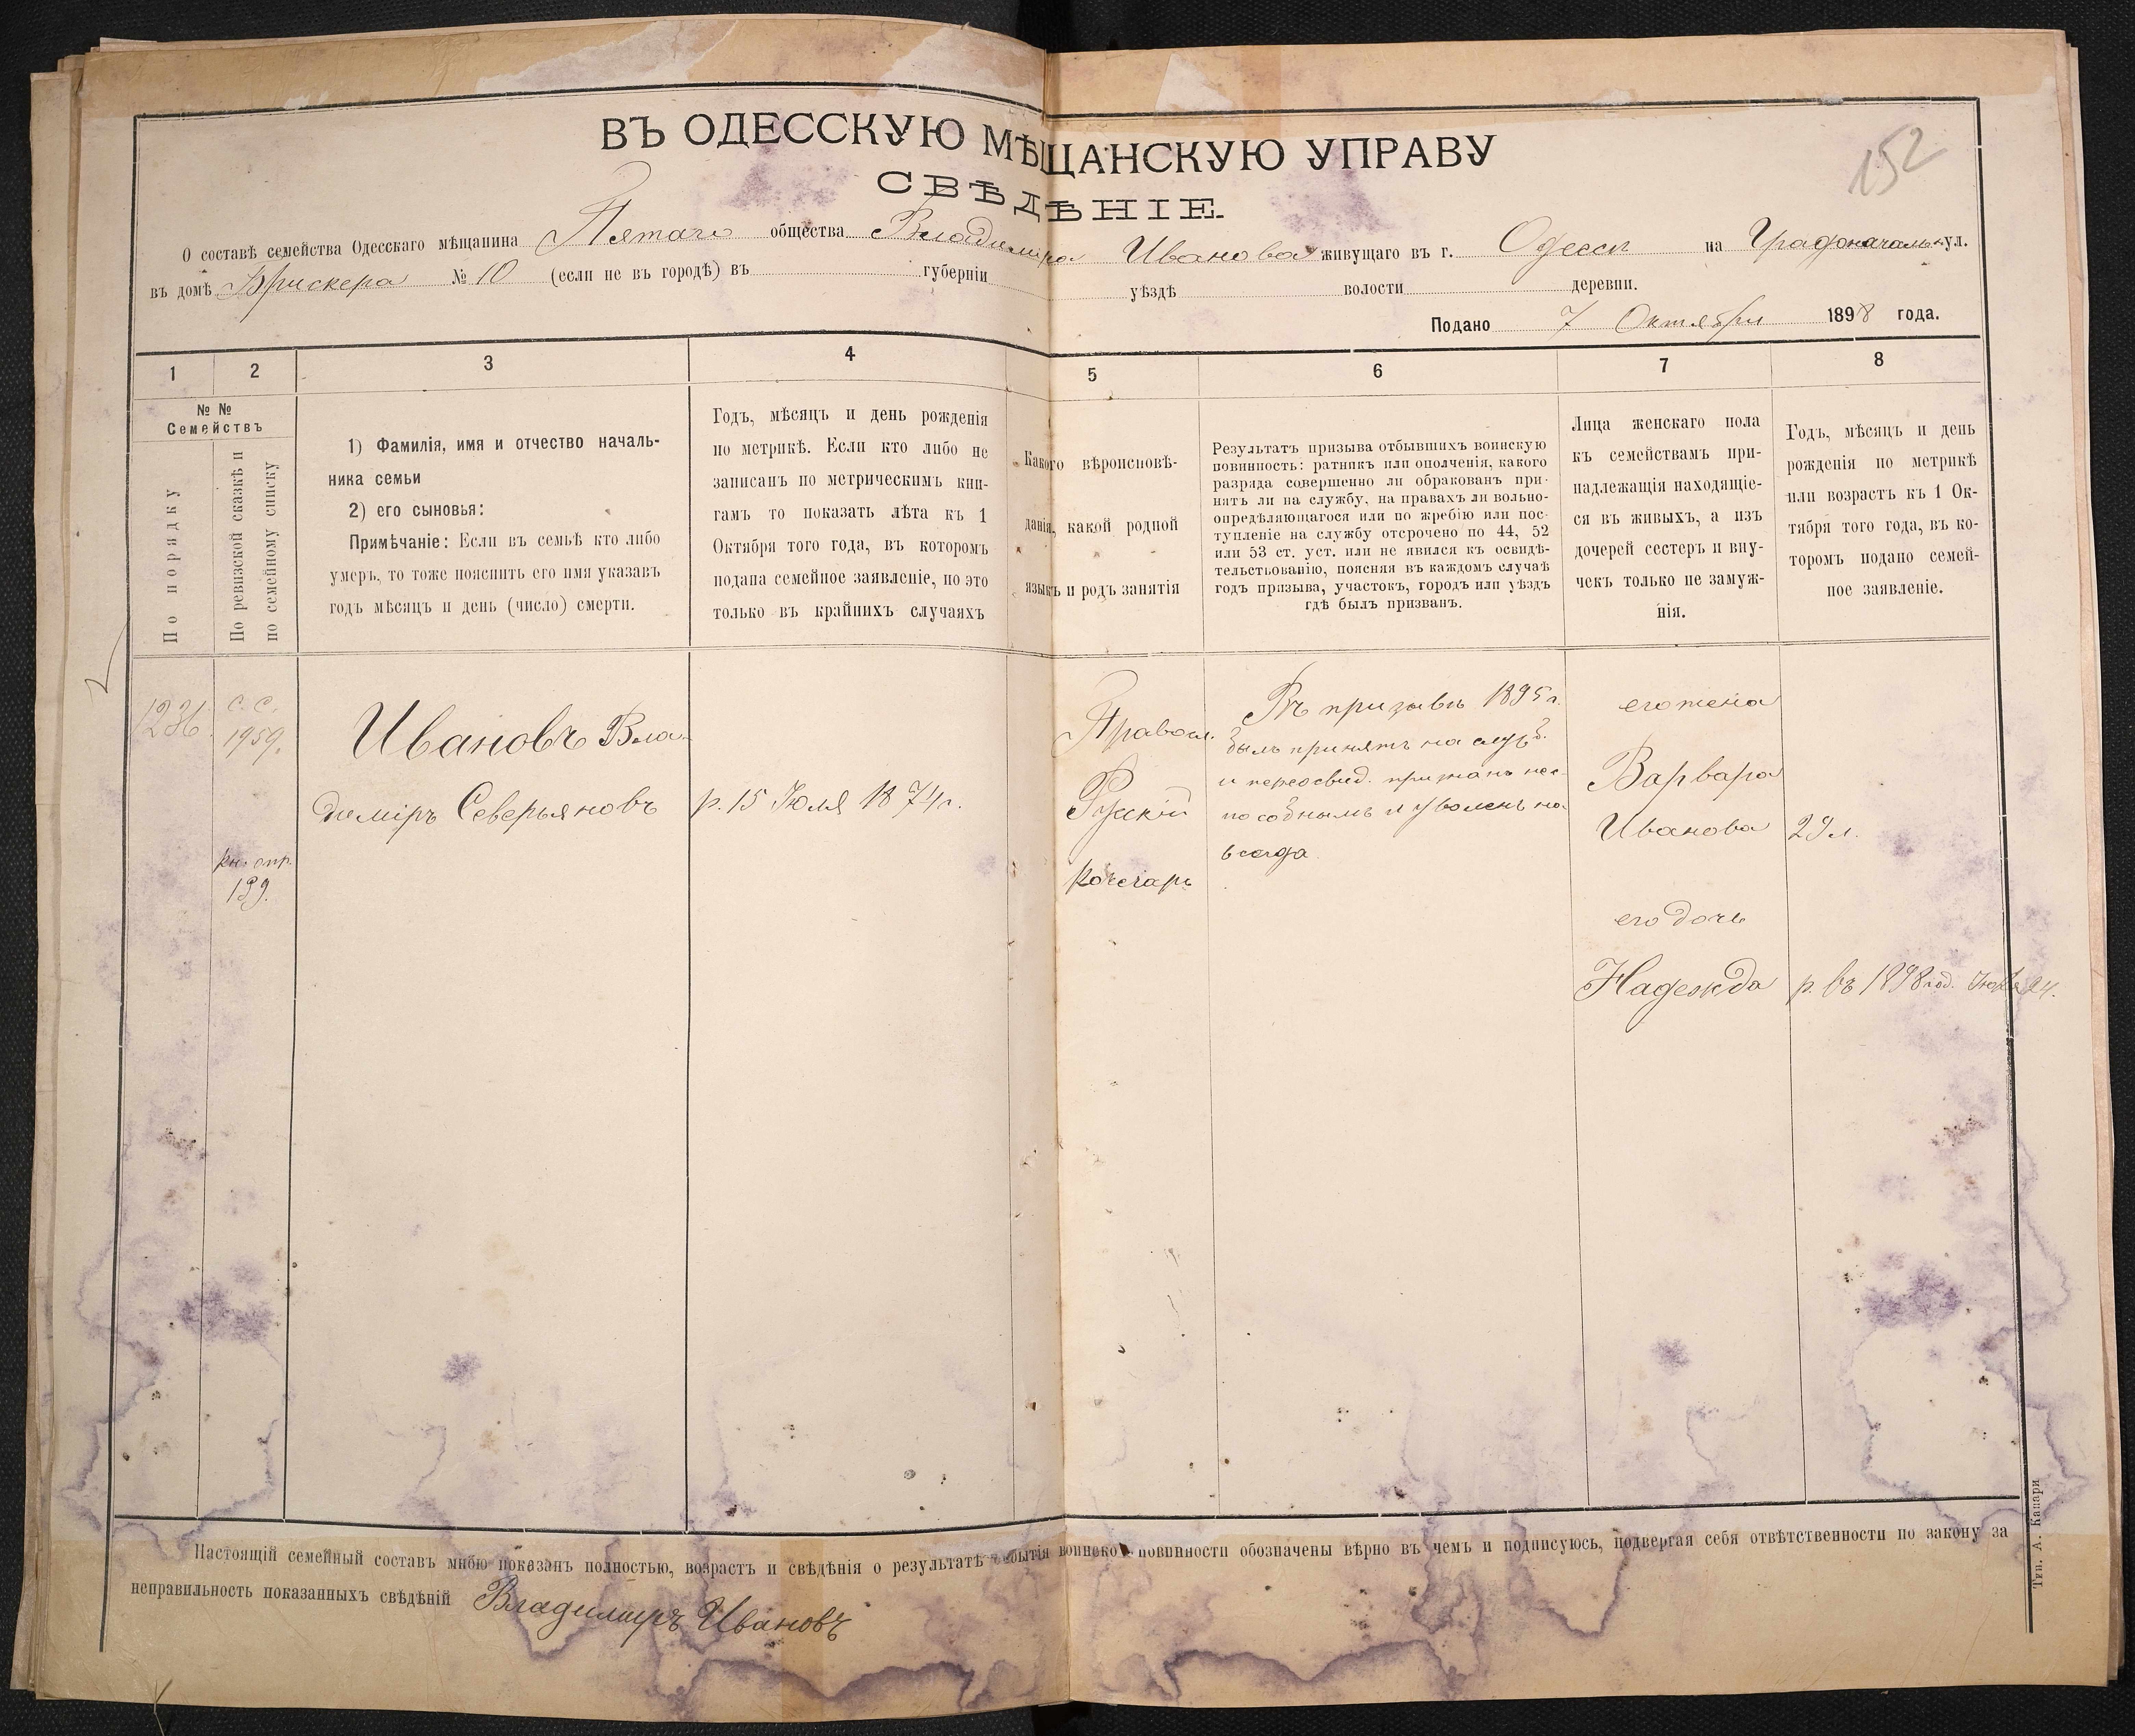 ВЪ ОДЕССКУЮ МѢЩАНСКУЮ УПРАВУ
152
СВѢДѢНІЕ.
О составѣ семейства Одесскаго мѣщанина Пятаго общества Владимира Иванова живущаго въ г. Одессѣ на Градоначальн. ул.
въ домѣ Брискера № 10 (если не въ городѣ) въ губерніи уѣздѣ волости деревни.
Подано 7 Октября 1898 года.
1 2 3 4 5 6 7 8
№ №
Семействъ
По порядку
По ревизской сказкѣ и
по семейному списку
1) Фамилія, имя и отчество началь-
ника семьи
2) его сыновья:
Примѣчаніе: Если въ семьѣ кто либо
умеръ, то тоже пояснить его имя указавъ
годъ мѣсяцъ и день (число) смерти.
Годъ, мѣсяцъ и день рожденія
по метрикѣ. Если кто либо не
записанъ по метрическимъ кни-
гамъ то показать лѣта къ 1
Октября того года, въ которомъ
подана семейное заявленіе, но это
только въ крайнихъ случаяхъ
Какого вѣроисповѣ-
данія, какой родной
языкъ и родъ занятія
Результатъ призыва отбывшихъ воинскую
повинность: ратникъ или ополченія, какого
разряда совершенно ли обракованъ при-
нятъ ли на службу, на правахъ ли вольно-
опредѣляющагося или по жребію или пос-
тупленіе на службу отсрочено по 44, 52
или 53 ст. уст. или не явился къ освидѣ-
тельствованію, поясняя въ каждомъ случаѣ
годъ призыва, участокъ, городъ или уѣздъ
гдѣ былъ призванъ.
Лица женскаго пола
къ семействамъ при-
надлежащія находящіе-
ся въ живыхъ, а изъ
дочерей сестеръ и вну-
чекъ только не замуж-
нія.
Годъ, мѣсяцъ и день
рожденія по метрикѣ
или возрастъ къ 1 Ок-
тября того года, въ ко-
торомъ подано семей-
ное заявленіе.
1236.
С. С.
1959.
кн. опр.
199.
Ивановъ Вла-
димiръ Северьяновъ
р. 15 Июля 1874 г.
Правосл.
Русскій
кочегаръ
Въ призывѣ 1895 г.
былъ принятъ на служб.
и переосвид. признанъ нес-
пособнымъ и уволенъ на-
всегда
его жена
Варвара
Иванова 29 л.
его дочь
Надежда р. въ 1898 год.
Настоящій семейный составъ мною показанъ полностью, возрастъ и свѣдѣнія о результатѣ повинности обозначены вѣрно въ чемъ и подписуюсь, подвергая себя отвѣтственности по закону за
неправильность показанныхъ свѣдѣній Владимиръ Ивановъ
Тип. А. Капари